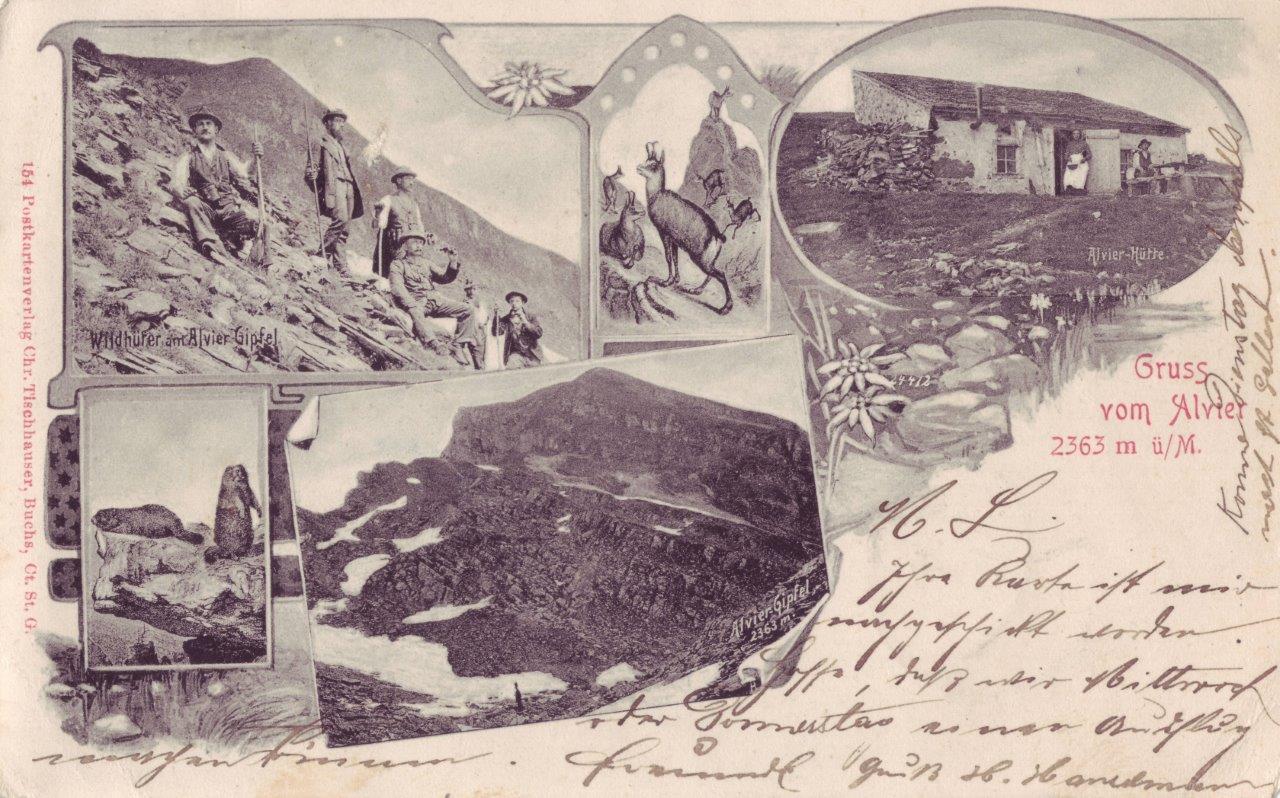 Wildhüter am Alvier Gipfel
Alvier-Hütte
4412
Gruss
vom Alvier
2363 m ü/M.
Alvier-Gipfel
2363 m
154 Postkartenverlag Chr. Tischhauser, Buchs, Ct. St. G.
M. L.
Ihre Karte ist mir
nachgeschikt worden.
Hoffe, daß wir Mittwoch
oder Donnerstag einen Ausflug
machen können.
Freundl Gruß H.
Komme Dienstag
nach St Gallen